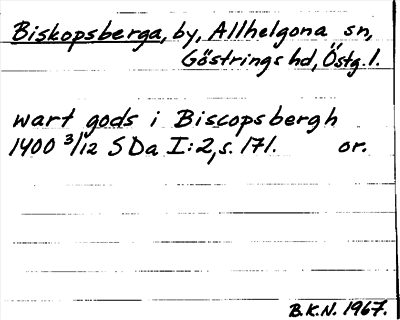 Biskopsberga, by, Allhelgona sn,
Göstrings hd, Östg. l.
wart gods i Biscopsbergh
1400 3/12 SDa I:2, s. 171. or.
B.K.N. 1967.